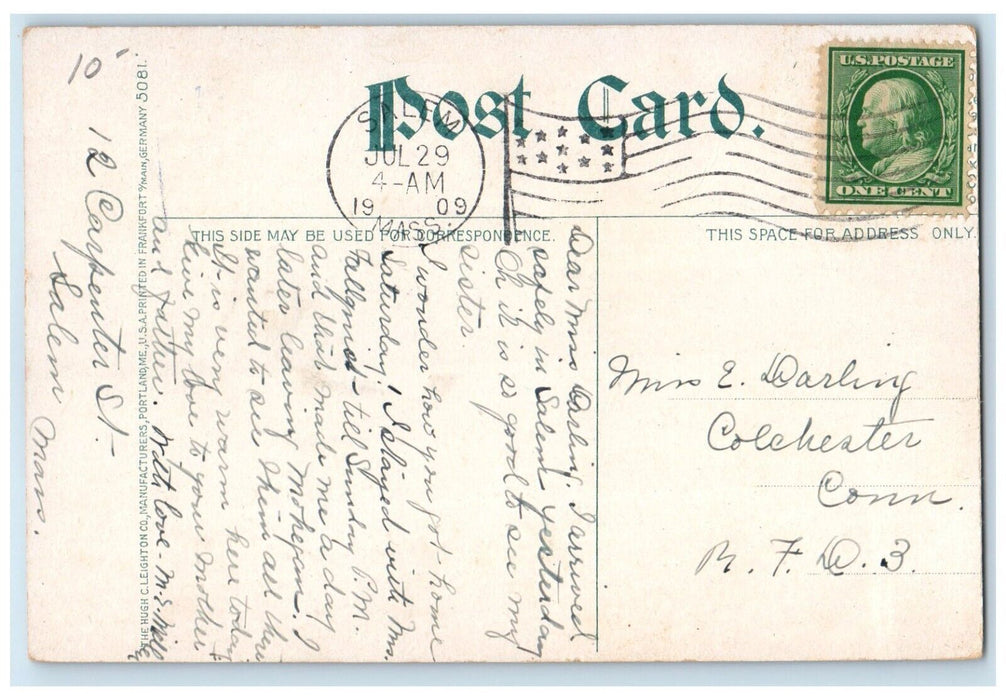 10
Post Card.
U.S. POSTAGE
ONE CENT
SALEM
JUL 29
4-AM
1909
MASS.
THIS SIDE MAY BE USED FOR CORRESPONDENCE.
THIS SPACE FOR ADDRESS ONLY.
THE HUGH C. LEIGHTON CO., MANUFACTURERS, PORTLAND, ME., U.S.A. PRINTED IN FRANKFORT O/MAIN, GERMANY 5081.
Dear Miss Darling. I arrived
safely in Salem yesterday
Oh it is so good to see my
sister.
I wonder how you got home
Saturday, I stayed with Mrs.
till Sunday P.M.
and that made me a day
later leaving Mohegan. I
wanted to see them all then
It is very warm here today
Give my love to your Mother
and Father. With love - M.S.
12 Carpenter St-
Salem
Mass.
Miss E. Darling
Colchester
Conn.
R. F. D. 3.